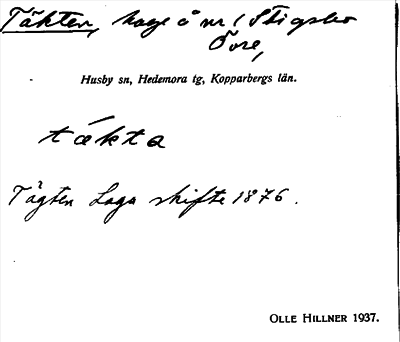 Täkten, hage å nr 1 Stigsbo
Övre,
Husby sn, Hedemora tg, Kopparbergs län.
tækta
Tägten Laga skifte 1876.
OLLE HILLNER 1937.